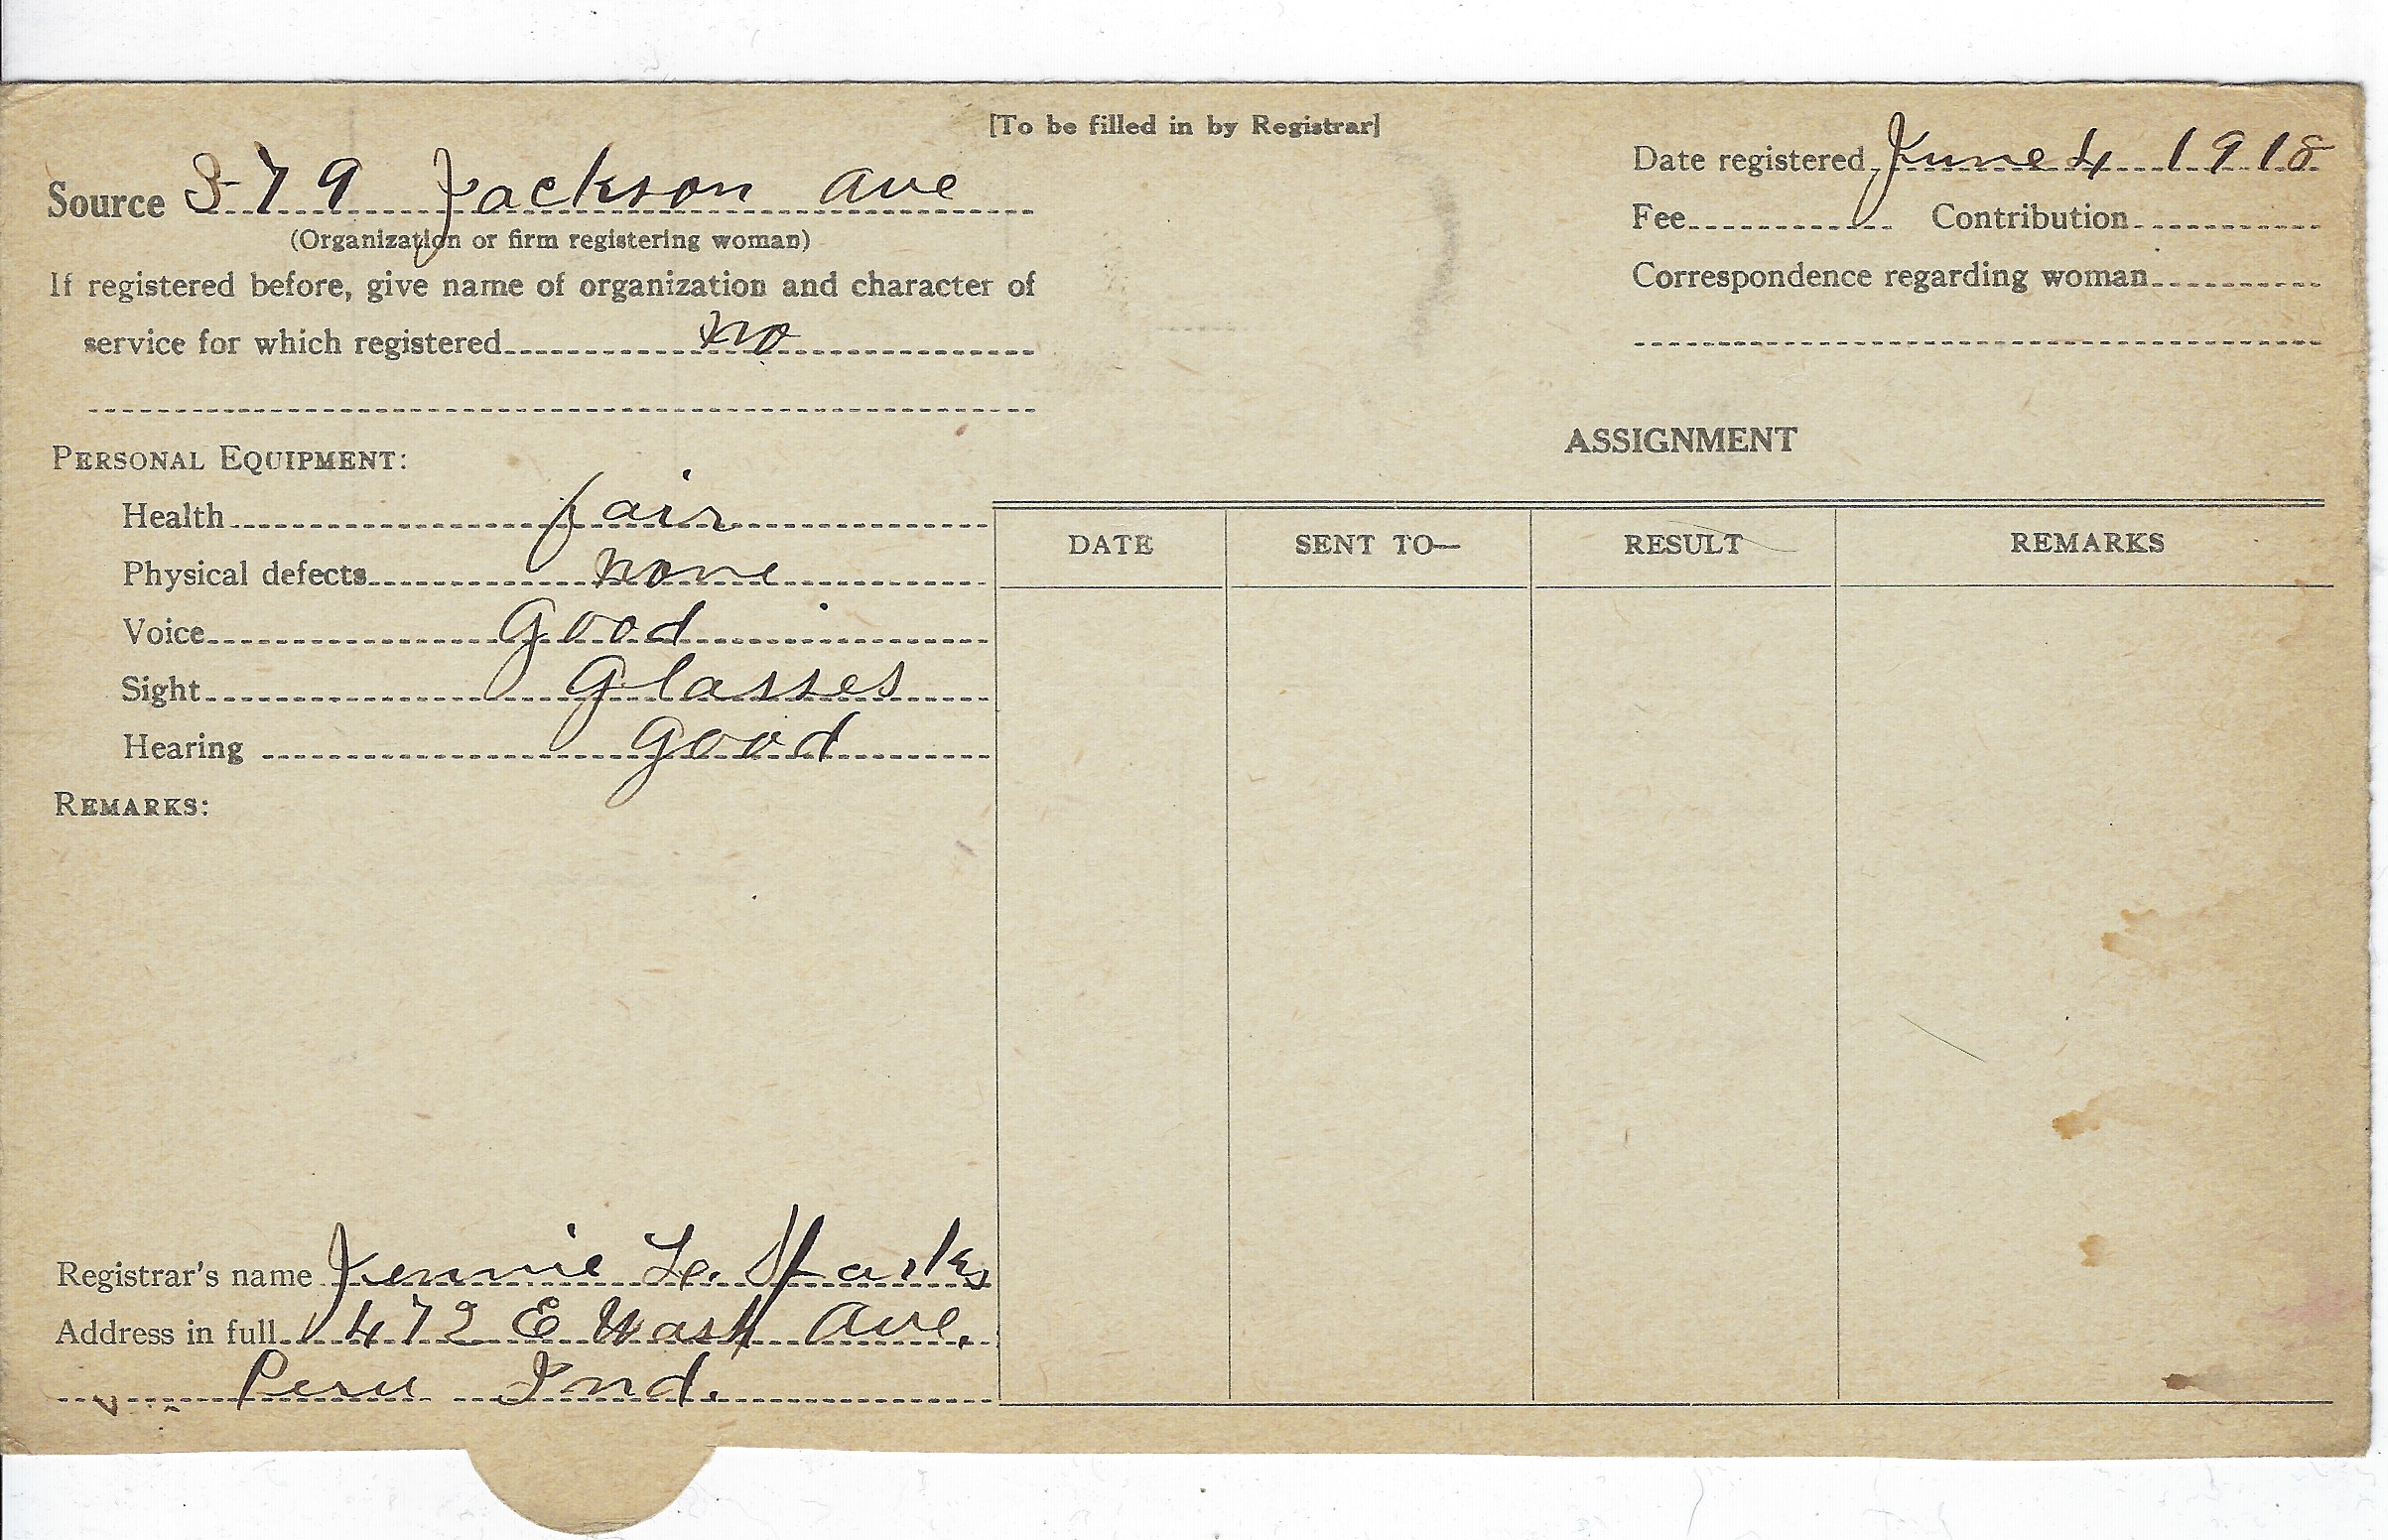 [To be filled in by Registrar]
Source 379 Jackson Ave
(Organization or firm registering woman)
If registered before, give name of organization and character of
service for which registered no
Date registered June 4 1918
Fee Contribution
Correspondence regarding woman
PERSONAL EQUIPMENT:
Health fair
Physical defects none
Voice good
Sight Glasses
Hearing good
REMARKS:
Registrar's name Jennie L. Sparks
Address in full 472 E Wash Ave.
Peru Ind.
ASSIGNMENT
DATE SENT TO— RESULT REMARKS